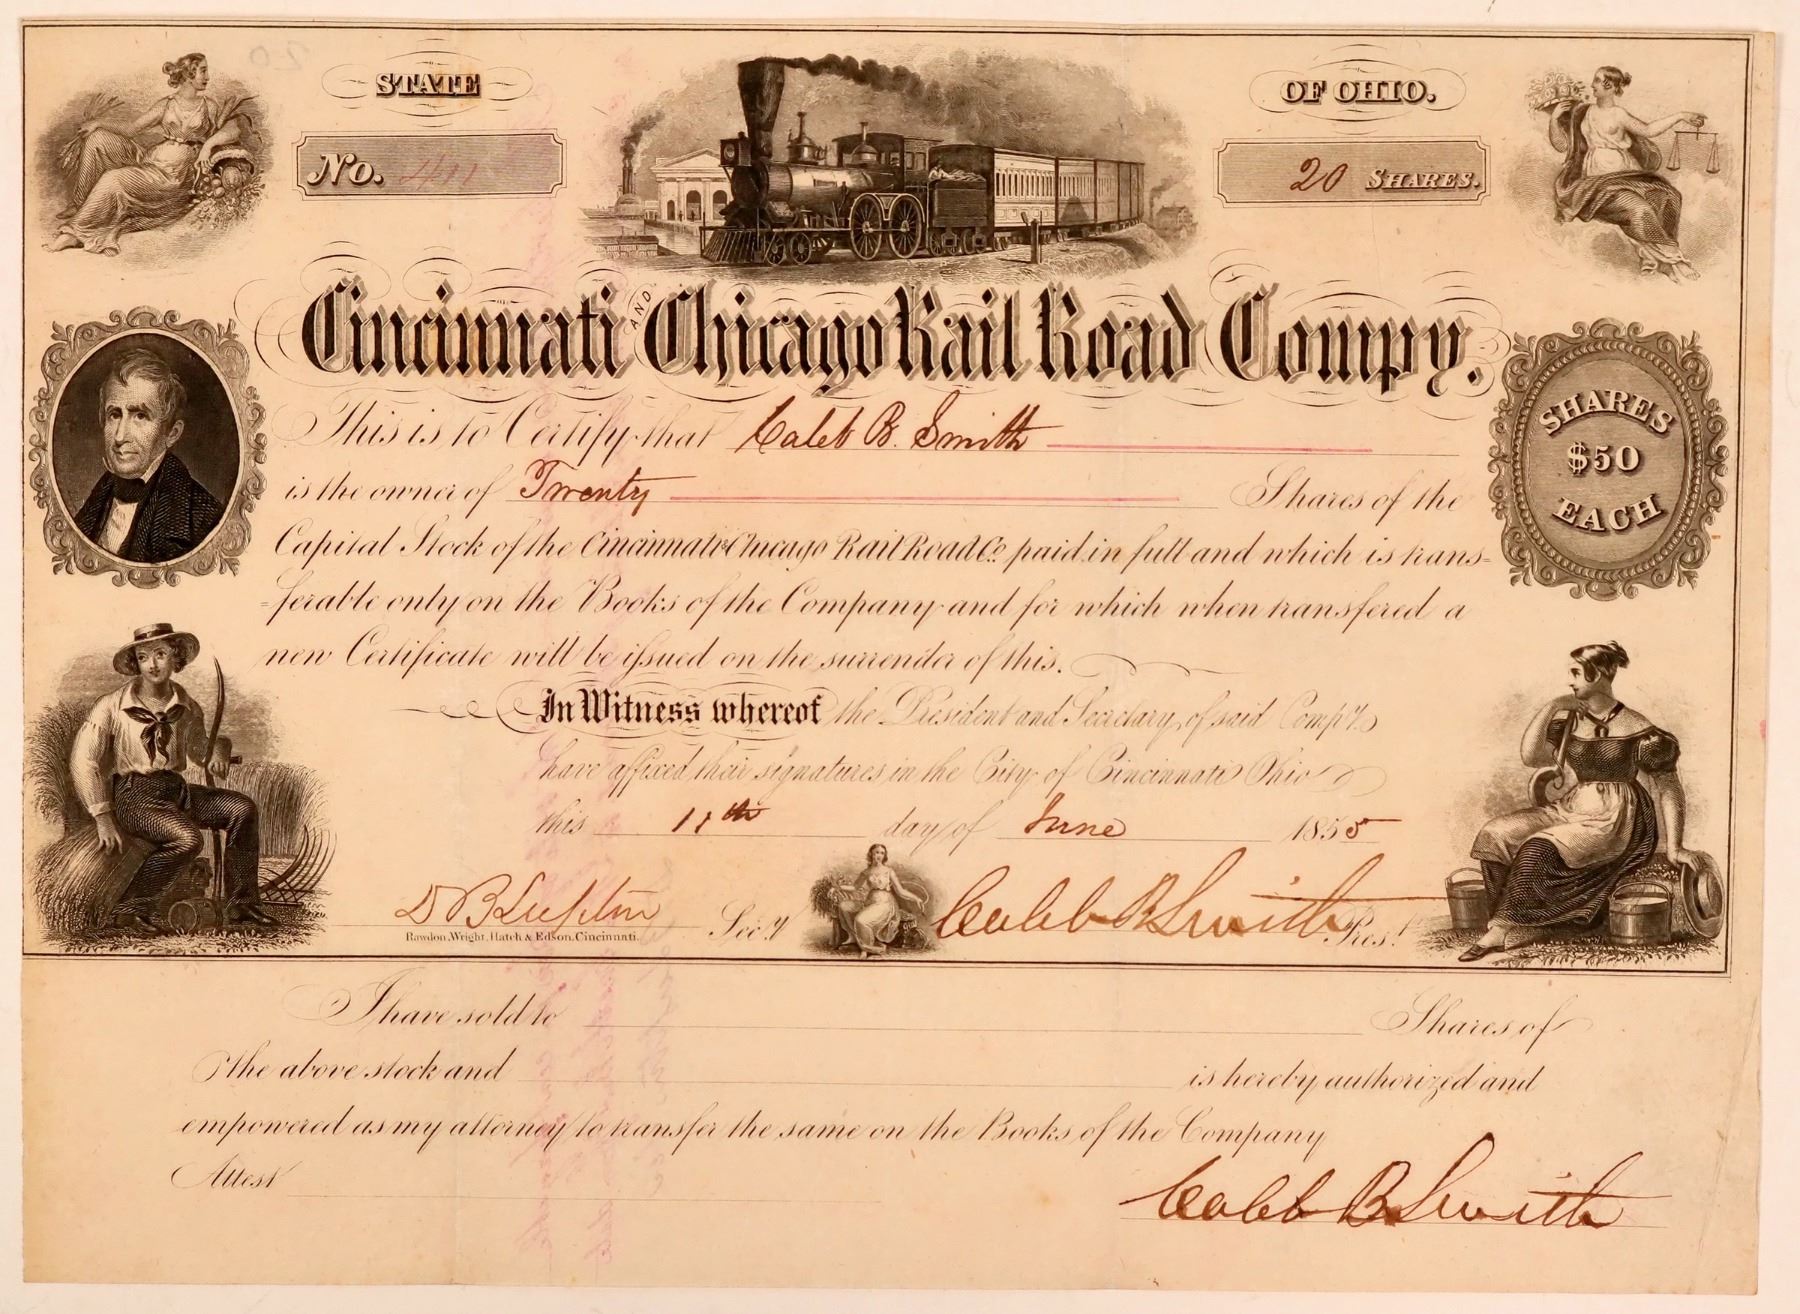 STATE OF OHIO.
No. 411
20 SHARES.
Cincinnati AND Chicago Rail Road Compy.
This is to Certify that Caleb B. Smith
is the owner of Twenty Shares of the
Capital Stock of the Cincinnati & Chicago Rail Road Co. paid in full and which is trans=
=ferable only on the Books of the Company and for which when transfered a
new Certificate will be issued on the surrender of this.
SHARES
$50
EACH
In Witness whereof the President and Secretary, of said Compy.
have affixed their signatures in the City of Cincinnati Ohio
this 11th day of June 1855
D B Lupton Secy Caleb B Smith Prest.
Rawdon, Wright, Hatch & Edson, Cincinnati.
I have sold to Shares of
the above stock and is hereby authorized and
empowered as my attorney to transfer the same on the Books of the Company
Attest
Caleb B Smith